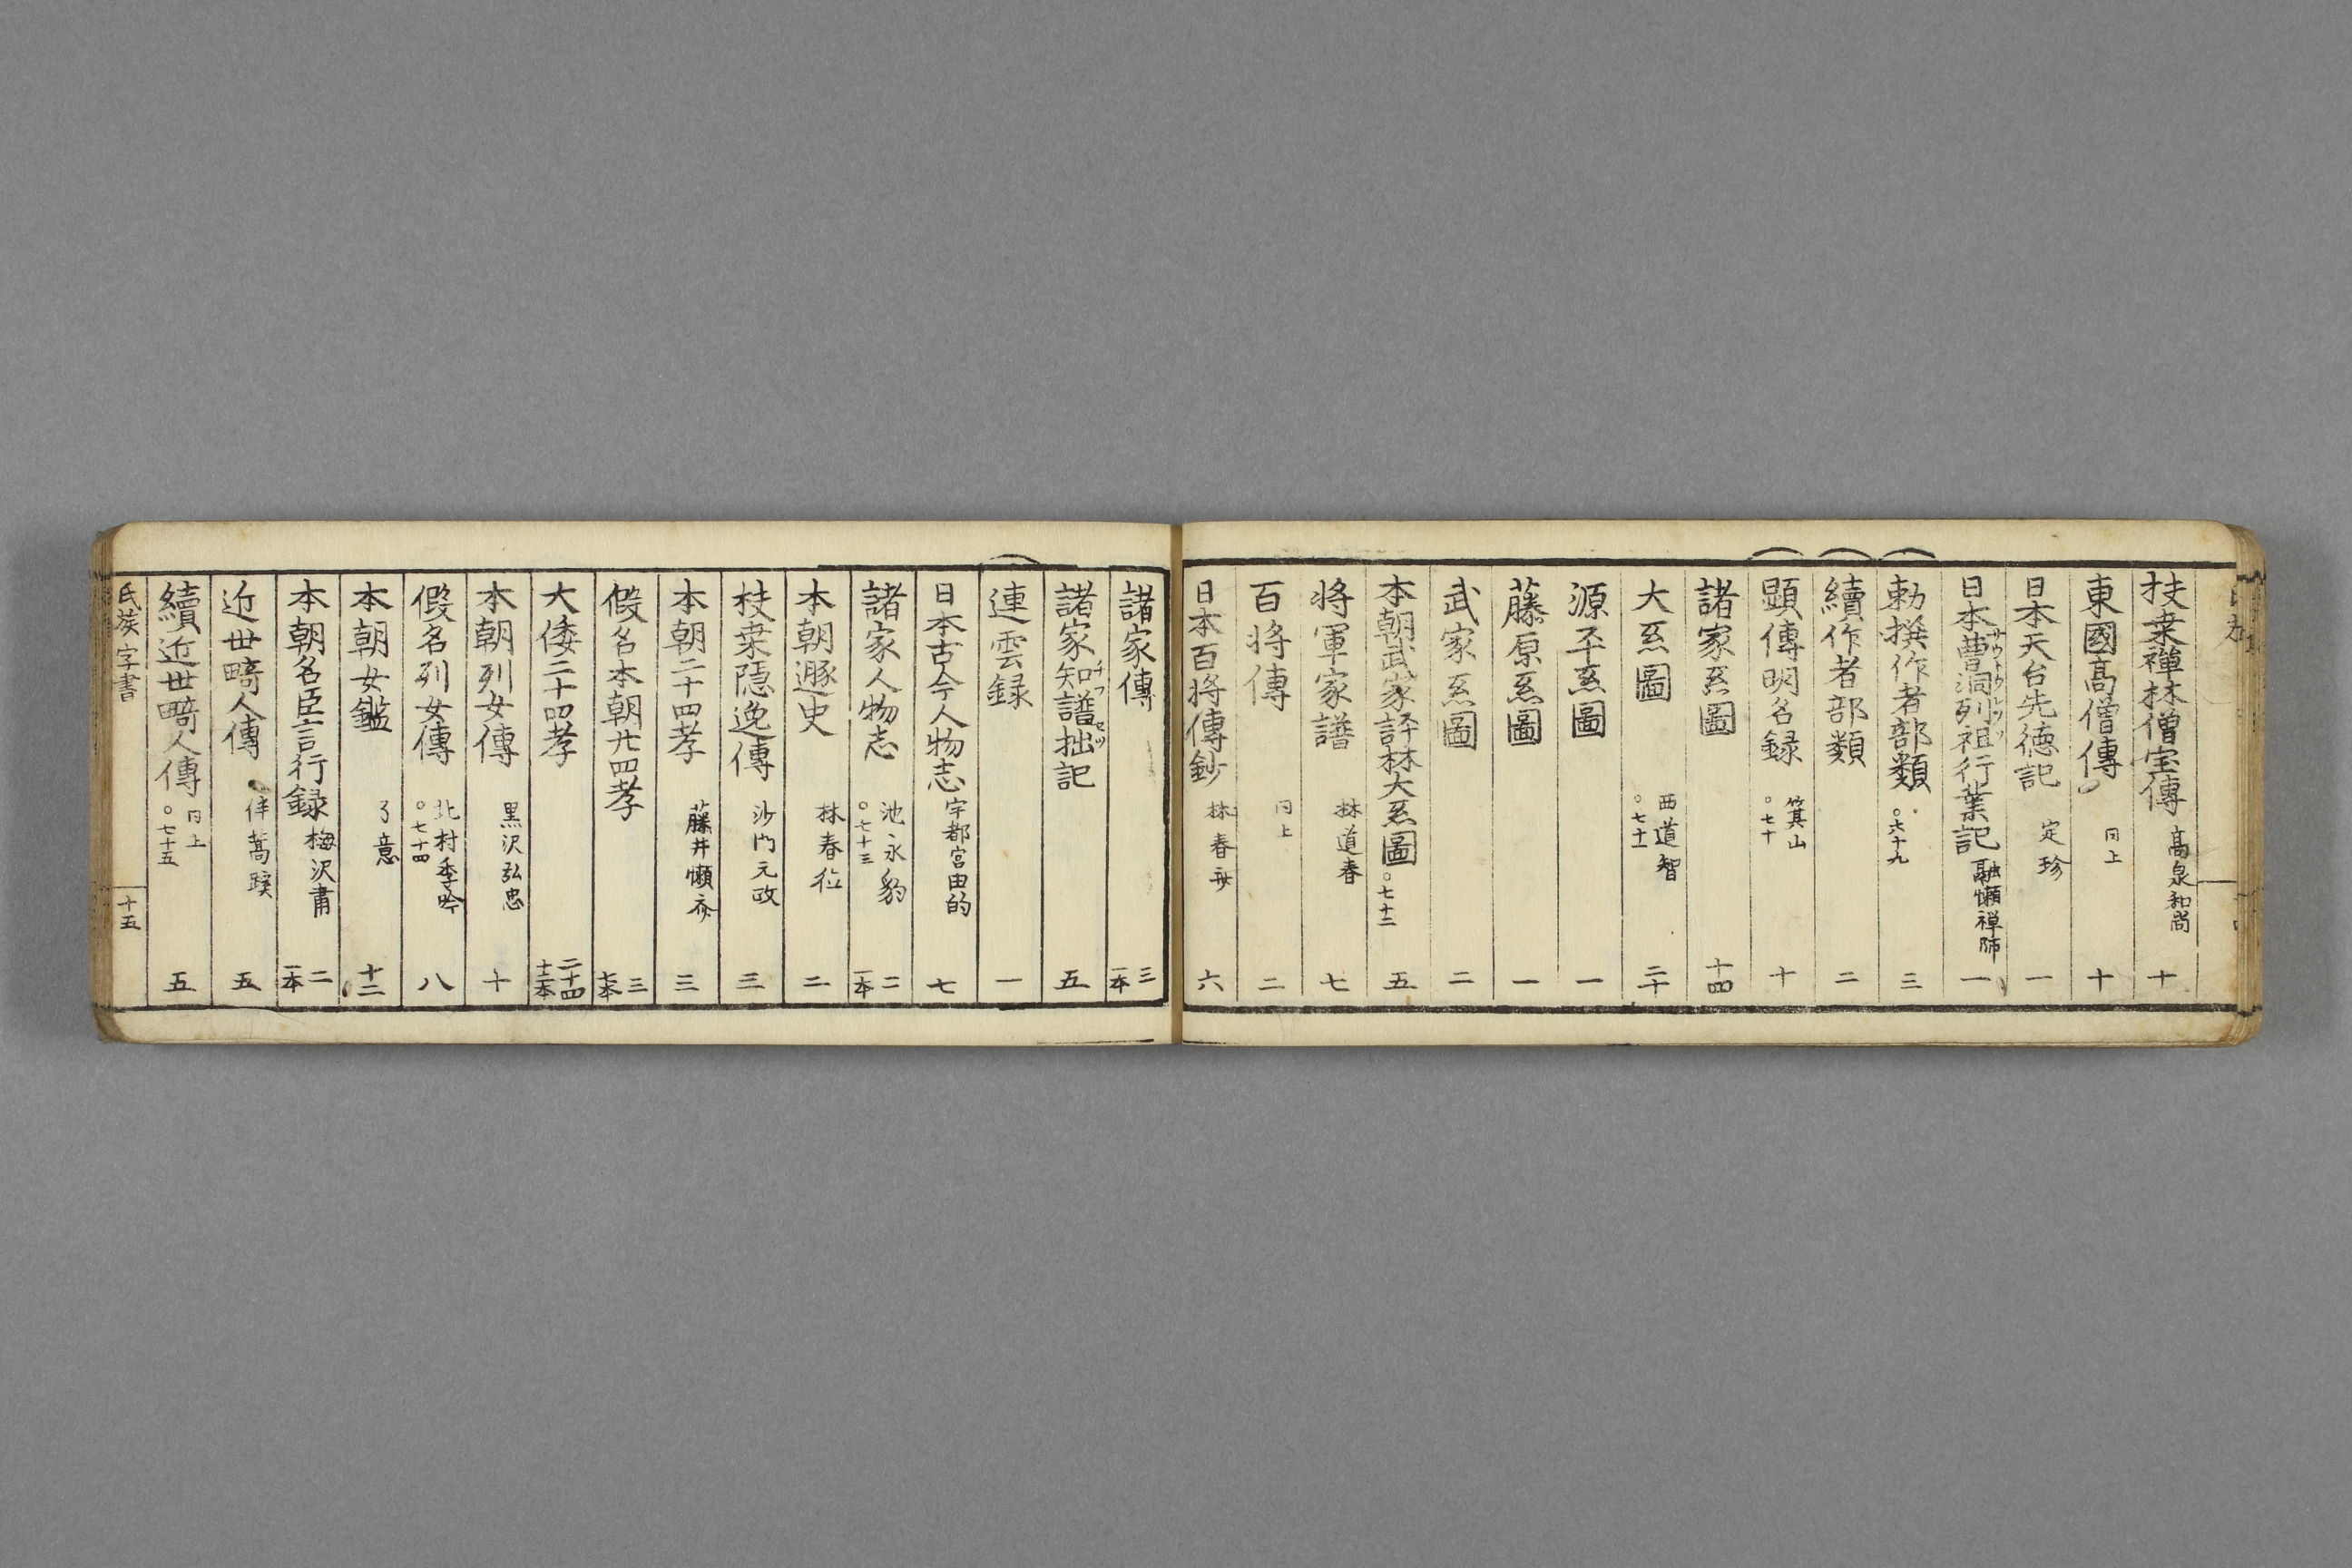 扶桒禅林僧宝傳 高泉和尚 十
東國高僧傳 同上 十
日本天台先徳記 定珍 一
日本曹洞列祖行業記 融懶禅師 一
勅撰作者部類 ○六十九 三
續作者部類 二
顕傳明名録 箕山 ○七十 十
諸家系圖 十四
大系圖 西道智 ○七十一 二十
源平系圖 一
藤原系圖 一
武家系圖 二
本朝武家評林大系圖 ○七十二 五
将軍家譜 林道春 七
百将傳 同上 二
日本百将傳鈔 林春斎 六
諸家傳 三 一本
諸家知譜拙記 五
連雲録 一
日本古今人物志 宇都宮由的 七
諸家人物志 池永豹 ○七十三 二 一本
本朝遯史 林春徳 二
扶桒隠逸傳 沙門元政 三
本朝二十四孝 藤井懶斎 三
假名本朝廿四孝 三 七本
大倭二十四孝 二十四 十二本
本朝列女傳 黒沢弘忠 十
假名列女傳 北村季吟 ○七十四 八
本朝女鑑 了意 十二
本朝名臣言行録 梅沢甫 二 一本
近世畸人傳 伴蒿蹊 五
續近世畸人傳 同上 ○七十五 五
氏族 字書 十五